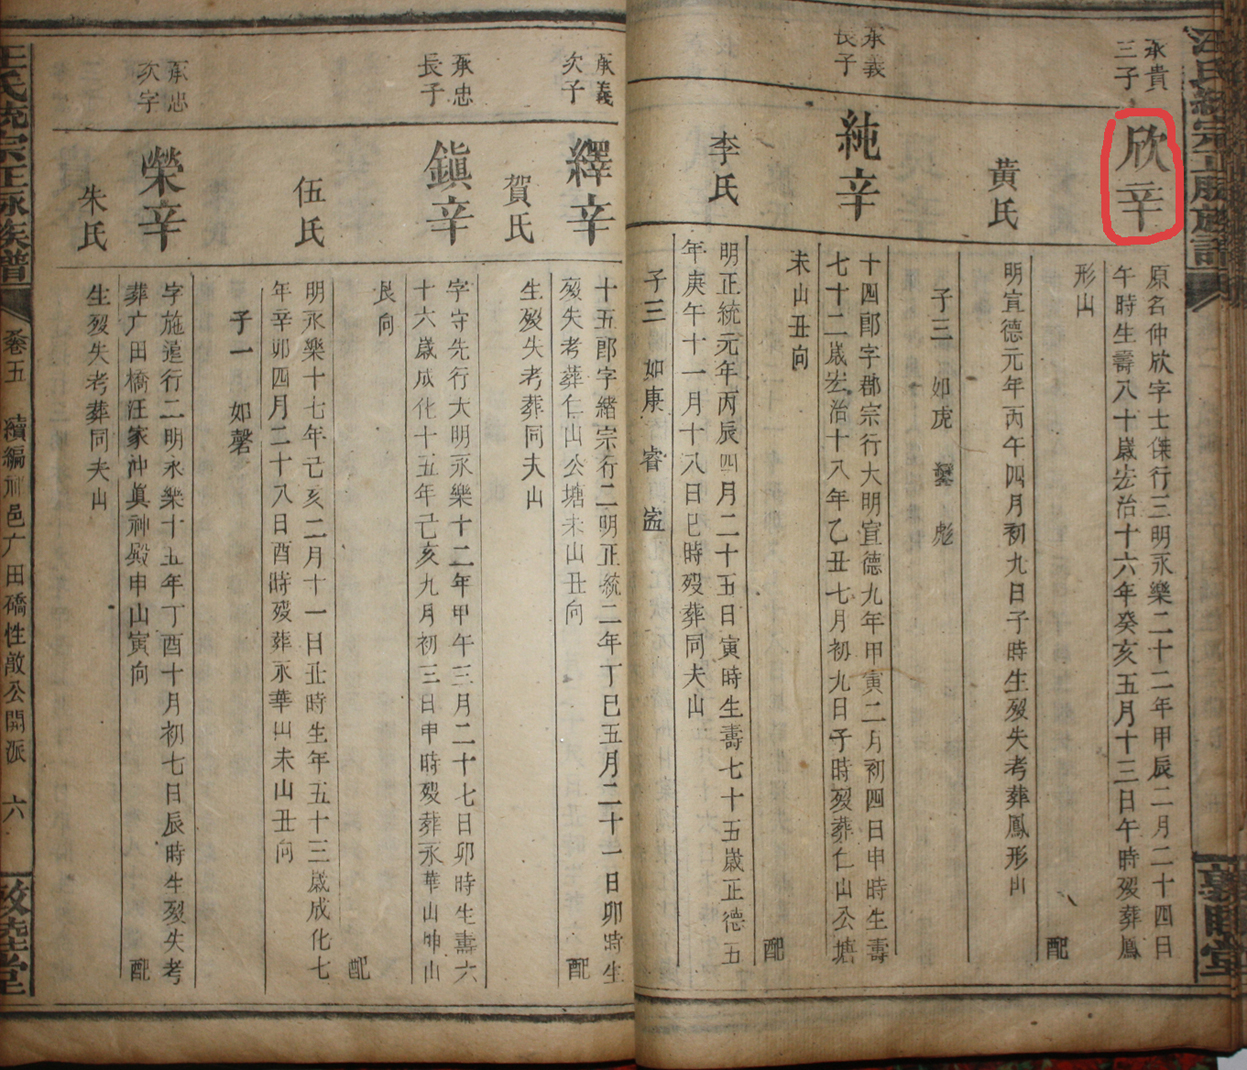 汪氏統宗正脉族譜
敦睦堂
承貴
三子
欣辛
原名仲欣字士傑行三明永樂二十二年甲辰二月二十四日
午時生壽八十歲宏治十六年癸亥五月十三日午時殁葬鳳
形山
配
黃氏
明宣德元年丙午四月初九日子時生殁失考葬鳳形山
子三 如虎 彪
承義
長子
純辛
十四郎字郡宗行大明宣德九年甲寅二月初四日申時生壽
七十二歲宏治十八年乙丑七月初九日子時殁葬仁山公塘
未山丑向
配
李氏
明正統元年丙辰四月二十五日寅時生壽七十五歲正德五
年庚午十一月十八日巳時殁葬同夫山
子三 如庚 睿
承義
次子
繹辛
十五郎字緒宗行二明正統二年丁巳五月二十一日卯時生
殁失考葬仁山公塘未山丑向
配
賀氏
生殁失考葬同夫山
承忠
長子
鎮辛
字守先行大明永樂十二年甲午三月二十七日卯時生壽六
十六歲成化十五年己亥九月初三日申時殁葬永華山坤山
艮向
配
伍氏
明永樂十七年己亥二月十一日丑時生年五十三歲成化七
年辛卯四月二十八日酉時殁葬永華山未山丑向
子一 如磬
承忠
次字
榮辛
字施遠行二明永樂十五年丁酉十月初七日辰時生殁失考
葬广田橋汪家沖真神殿申山寅向
配
朱氏
生殁失考葬同夫山
汪氏統宗正脉族譜
卷五 續編祁邑广田橋性敵公開派 六
敦睦堂